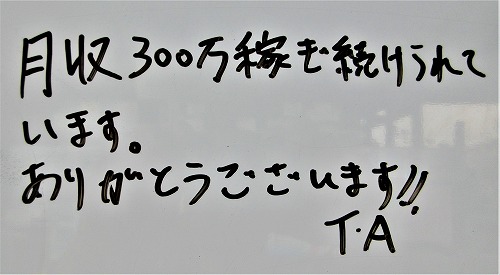 月収300万稼ぎ続けられて
います。
ありがとうございます!!
T.A